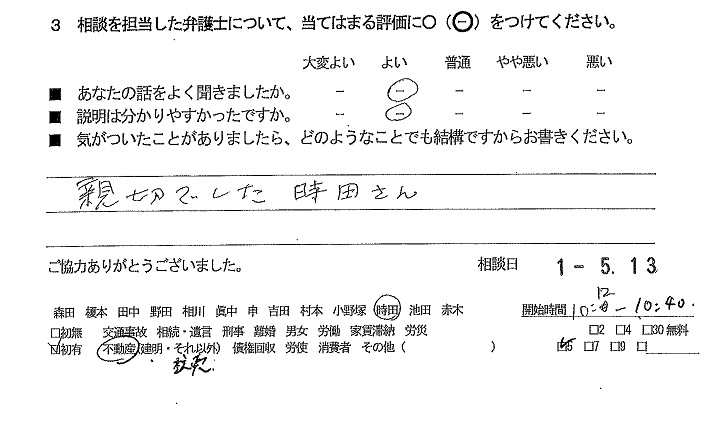 3 相談を担当した弁護士について、当てはまる評価に○（⊖）をつけてください。
大変よい よい 普通 やや悪い 悪い
■ あなたの話をよく聞きましたか。 － － － － －
■ 説明は分かりやすかったですか。 － － － － －
■ 気がついたことがありましたら、どのようなことでも結構ですからお書きください。
親切でした 時田さん
ご協力ありがとうございました。 相談日 1-5.13
森田 榎本 田中 野田 相川 眞中 申 吉田 村本 小野塚 時田 池田 赤木 開始時間 10: - 10:40
12
□初無 交通事故 相続・遺言 刑事 離婚 男女 労働 家賃滞納 労災 □2 □4 □30無料
☑初有 不動産(建明・それ以外) 債権回収 労使 消費者 その他 ( ) ☑5 □7 □9 □